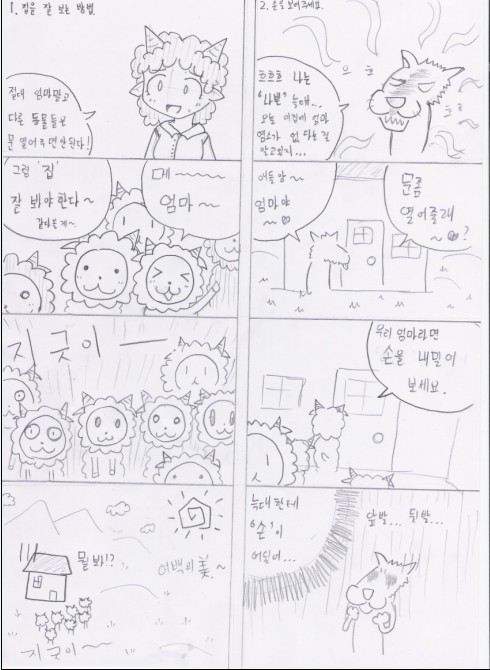 1. 집을 잘 보는 방법.
절대 엄마말고
다른 동물들보고
문 열어주면 안된다!
그럼 '집'
잘 봐야한다~
갔다올게~.
메~~~~
엄마~
지긋이ㅡ
뭘 봐!?
여백의 美.~
지긋이~
2. 손을 보여주세요.
으 흐
흐흐흐 나는
"나쁜" 늑대...
오늘 이집에 엄마
염소가 없다는걸
알고있지...
얘들앙~
엄마야
~♥
문좀
열어줄래
~♥?
우리 엄마라면
손을 내밀어
보세요.
늑대한테
'손'이
어딨어...
앞발... 뒷발...